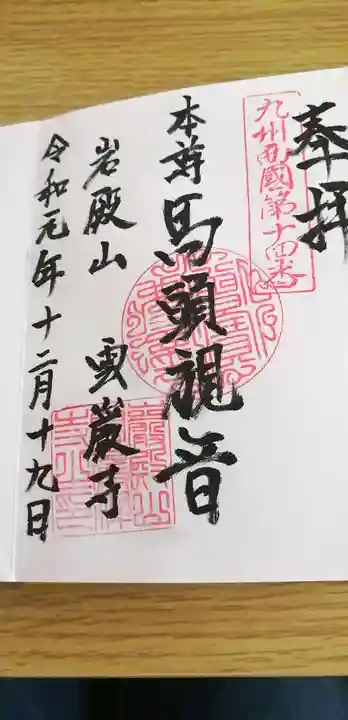 奉拝
九州西國第十四番
本尊馬頭観音
岩殿山 雲巌寺
令和元年十二月十九日